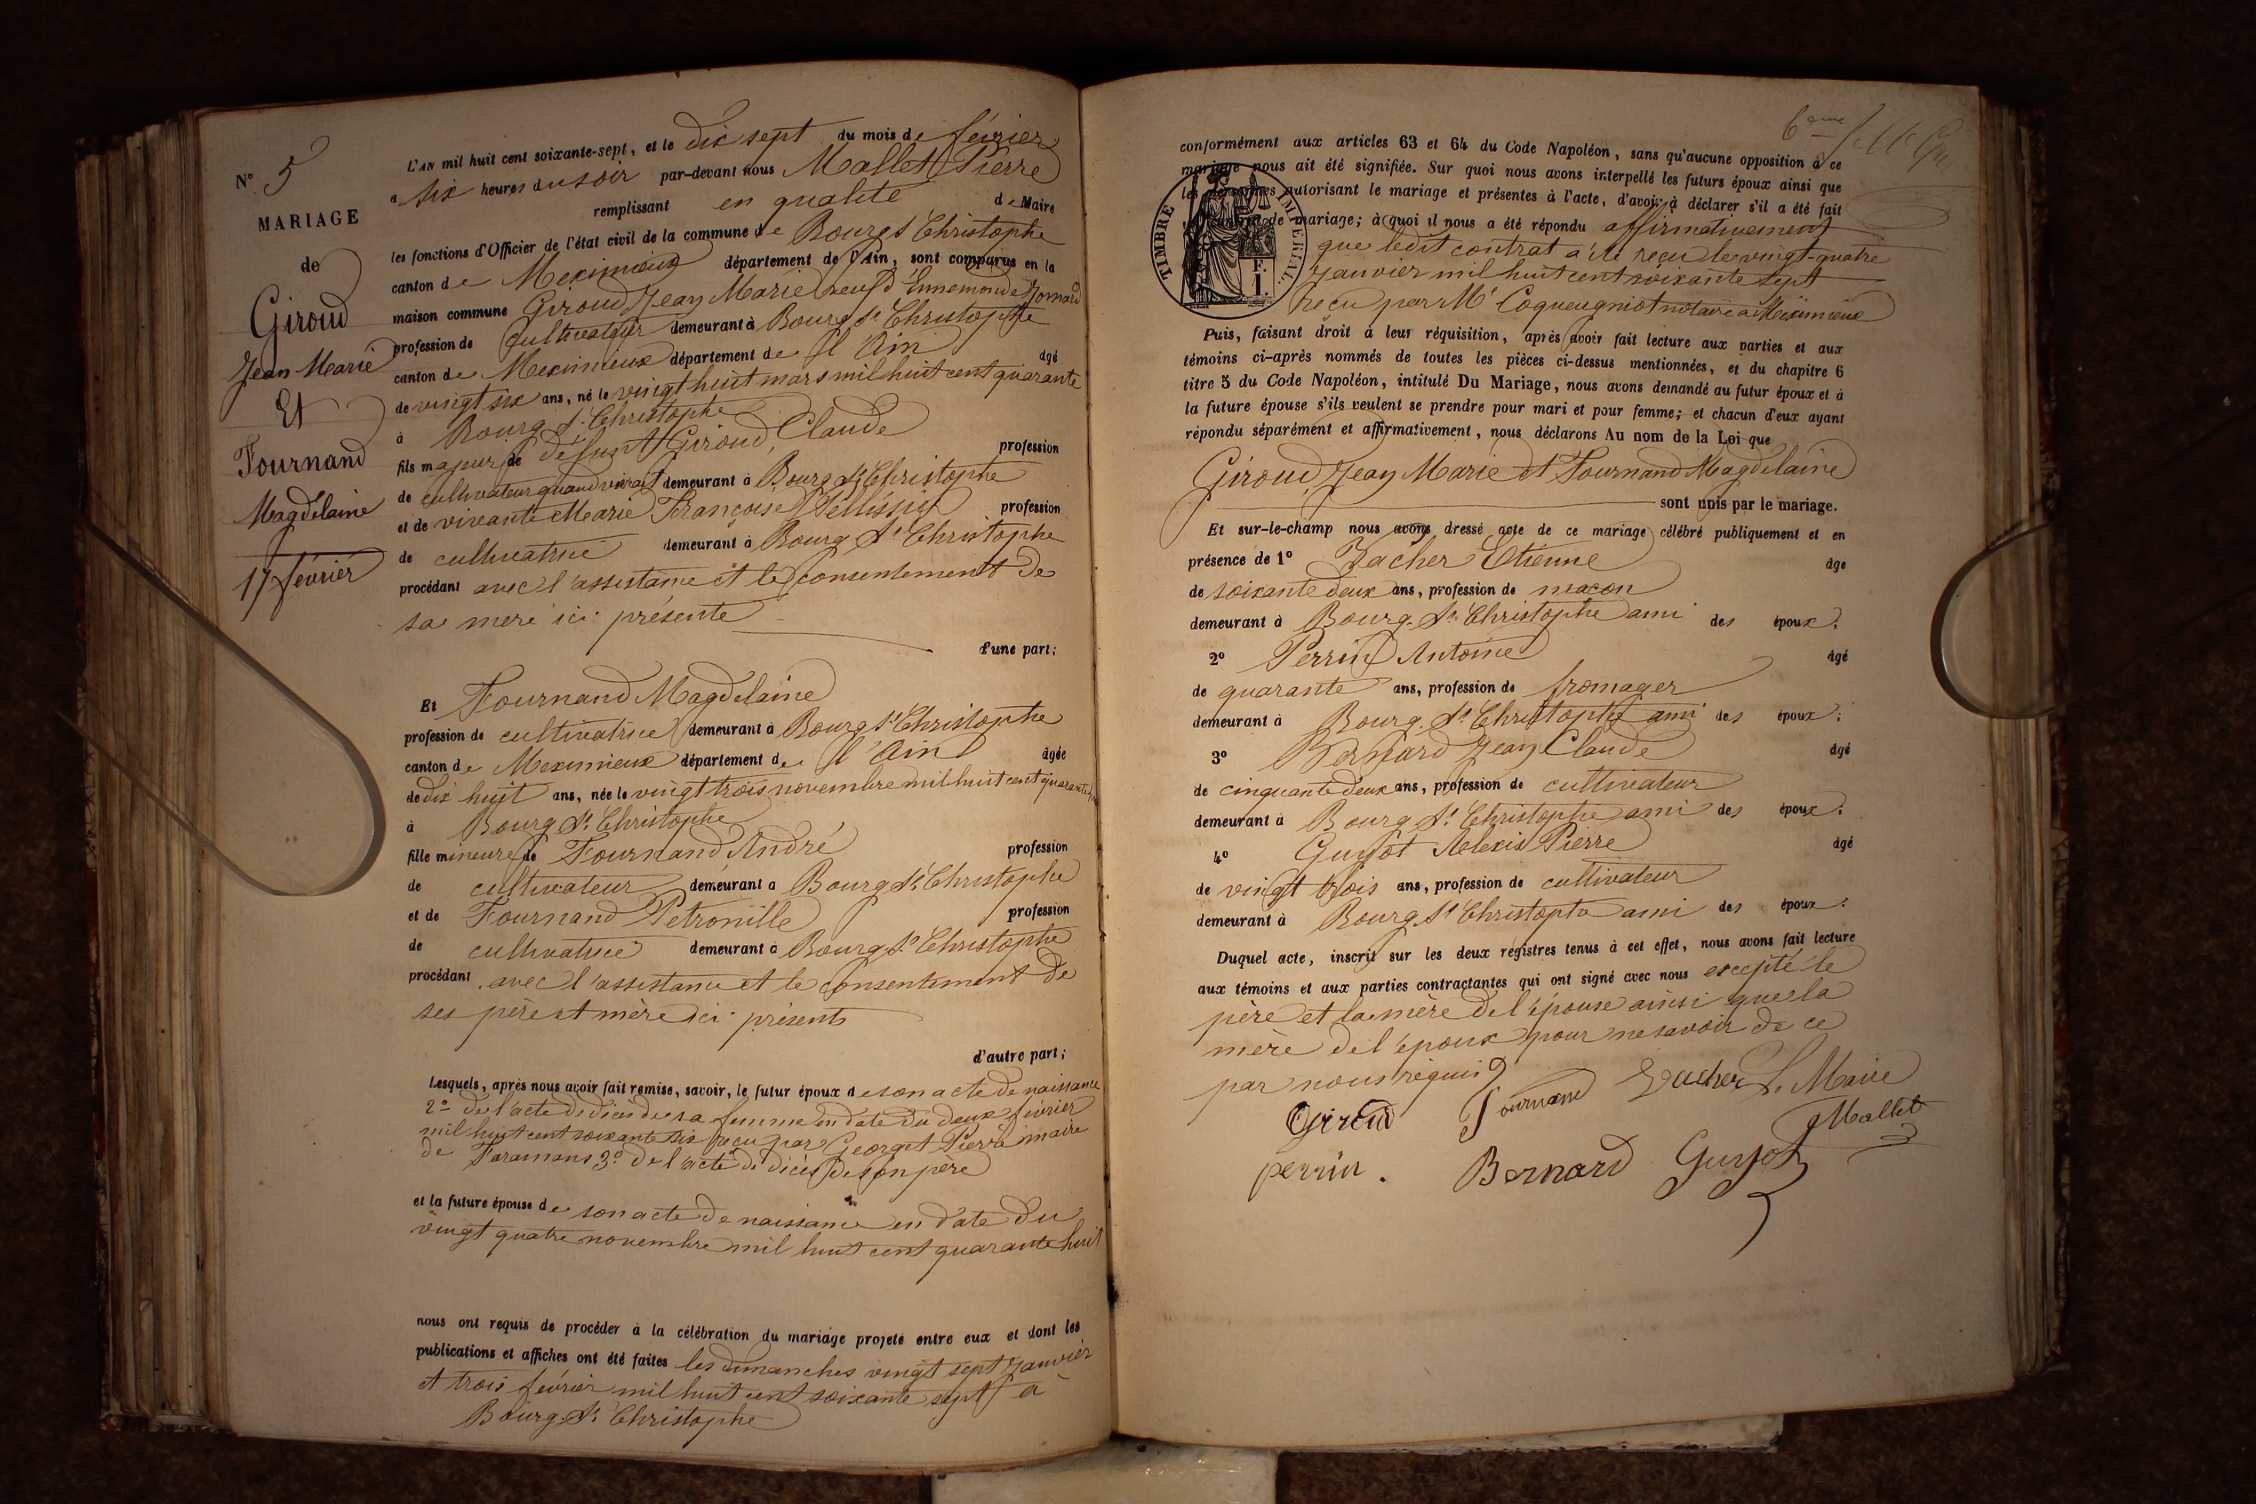 N° 5
MARIAGE
de
Giroud
Jean Marie
Et
Fournand
Magdelaine
17 février
L'AN mil huit cent soixante-sept, et le dix sept du mois de février
a six heures du soir par-devant nous Mallet Pierre
remplissant en qualité de Maire
les fonctions d'Officier de l'état civil de la commune de Bourg St Christophe
canton de Meximieux département de l'Ain, sont comparus en la
maison commune Giroud Jean Marie veuf d'Ennemonde Jomard
profession de Cultivateur demeurant à Bourg St Christophe
canton de Meximieux département de l'Ain âgé
de vingt six ans, né le vingt huit mars mil huit cent quarante
à Bourg St Christophe
fils majeur de défunt Giroud Claude profession
de cultivateur quand vivait demeurant à Bourg St Christophe
et de vivante Marie Françoise Pellissier profession
de cultivatrice demeurant à Bourg St Christophe
procédant avec l'assistance et le consentement de
sa mère ici présente
d'une part;
Et Fournand Magdelaine
profession de cultivatrice demeurant à Bourg St Christophe
canton de Meximieux département de l'Ain âgée
de dix huit ans, née le vingt trois novembre mil huit cent quarante
à Bourg St Christophe
fille mineure de Fournand André profession
de cultivateur demeurant a Bourg St Christophe
et de Fournand Petronille profession
de cultivatrice demeurant à Bourg St Christophe
procédant avec l'assistance et le Consentement de
ses père et mère ici présents
d'autre part;
Lesquels, après nous avoir fait remise, savoir, le futur époux de son acte de naissance
2° de l'acte de décès de sa femme en date du deux février
mil huit cent soixante six reçu par Georget Pierre maire
de Faramans 3° de l'acte de décès de son père
et la future épouse de son acte de naissance en date du
vingt quatre novembre mil huit cent quarante huit
nous ont requis de procéder à la célébration du mariage projeté entre eux et dont les
publications et affiches ont été faites les dimanches vingt sept janvier
et trois février mil huit cent soixante sept a
Bourg St Christophe
6eme
conformément aux articles 63 et 64 du Code Napoléon, sans qu'aucune opposition à ce
mariage nous ait été signifiée. Sur quoi nous avons interpellé les futurs époux ainsi que
les personnes autorisant le mariage et présentes à l'acte, d'avoir à déclarer s'il a été fait
de mariage; à quoi il nous a été répondu affirmativement
TIMBRE IMPERIAL
F.
1.
que ledit contrat a été reçu le vingt-quatre
janvier mil huit cent soixante sept
Reçu par Me Coqueugniot notaire à Meximieux
Puis, faisant droit à leur réquisition, après avoir fait lecture aux parties et aux
témoins ci-après nommés de toutes les pièces ci-dessus mentionnées, et du chapitre 6
titre 5 du Code Napoléon, intitulé Du Mariage, nous avons demandé au futur époux et à
la future épouse s'ils veulent se prendre pour mari et pour femme; et chacun d'eux ayant
répondu séparément et affirmativement, nous déclarons Au nom de la Loi que
Giroud Jean Marie et Fournand Magdelaine
sont unis par le mariage.
Et sur-le-champ nous avons dressé acte de ce mariage célébré publiquement et en
présence de 1° Zacher Etienne âge
de soixante deux ans, profession de maçon
demeurant à Bourg St Christophe ami des époux;
2° Perrin Antoine âgé
de quarante ans, profession de fromager
demeurant à Bourg St Christophe ami des époux;
3° Bernard Jean Claude âgé
de cinquante deux ans, profession de cultivateur
demeurant à Bourg St Christophe ami des époux;
4° Guyot Alexis Pierre âgé
de vingt trois ans, profession de cultivateur
demeurant à Bourg St Christophe ami des époux.
Duquel acte, inscrit sur les deux registres tenus à cet effet, nous avons fait lecture
aux témoins et aux parties contractantes qui ont signé avec nous excepté le
père et la mère de l'épouse ainsi que la
mère de l'époux pour ne savoir de ce
par nous requis
Giroud Fournand Zacher Le Maire
Mallet
perrin. Bernard Guyot